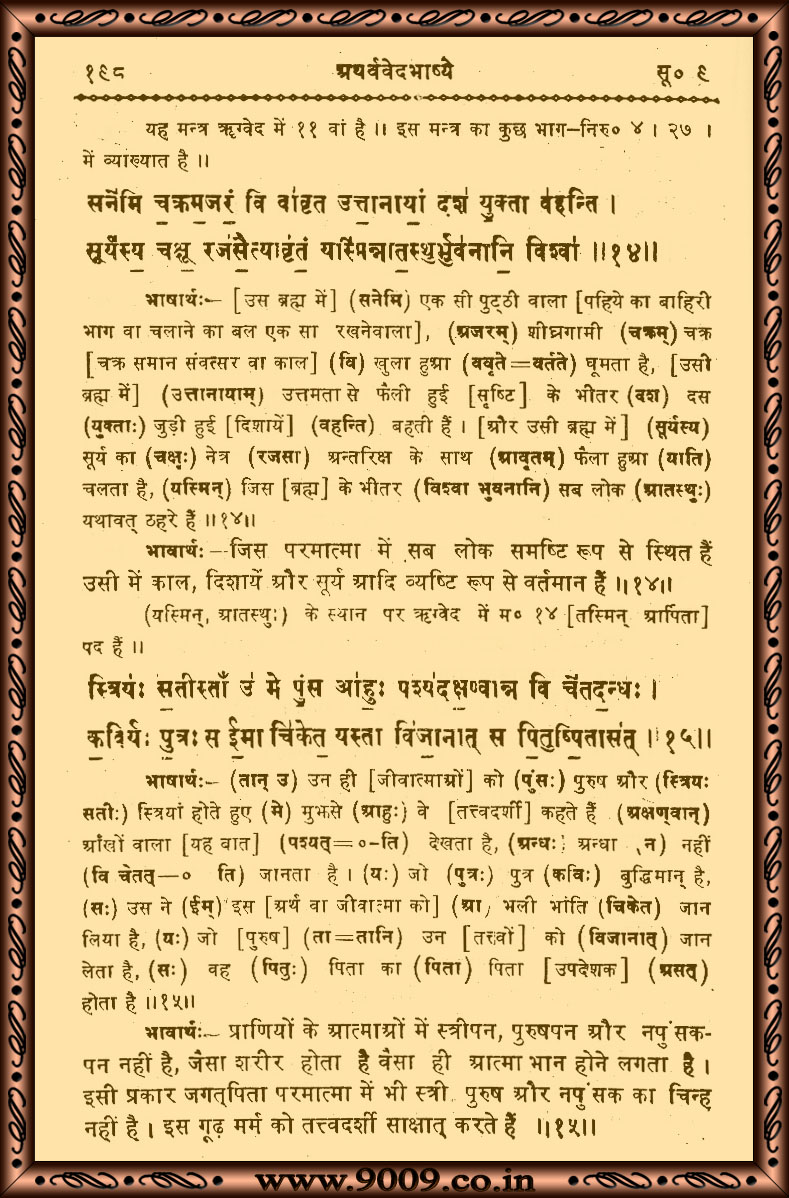 १९८ अथर्ववेदभाष्ये सू० ९
यह मन्त्र ऋग्वेद में ११ वां है ।। इस मन्त्र का कुछ भाग–निरु० ४ । २७ ।
में व्याख्यात है ।।
सने॑मि च॒क्रम॒जरं॒ वि वा॑वृत उत्ता॒नाया॒ं दश॑ यु॒क्ता व॑हन्ति ।
सूर्य॑स्य॒ चक्षू॒ रज॑सै॒त्यावृ॑तं॒ यस्मि॑न्नात॒स्थुर्भुव॑नानि॒ विश्वा॑ ।।१४।।
भाषार्थः– [उस ब्रह्म में] (सनेमि) एक सी पुट्ठी वाला [पहिये का बाहिरी
भाग वा चलाने का बल एक सा रखनेवाला], (अजरम्) शीघ्रगामी (चक्रम्) चक्र
[चक्र समान संवत्सर वा काल] (वि) खुला हुआ (ववृते=वर्तते) घूमता है, [उसी
ब्रह्म में] (उत्तानायाम्) उत्तमता से फैली हुई [सृष्टि] के भीतर (दश) दस
(युक्ताः) जुड़ी हुई [दिशायें] (वहन्ति) बहती हैं । [और उसी ब्रह्म में] (सूर्यस्य)
सूर्य का (चक्षुः) नेत्र (रजसा) अन्तरिक्ष के साथ (आवृतम्) फैला हुआ (याति)
चलता है, (यस्मिन्) जिस [ब्रह्म] के भीतर (विश्वा भुवनानि) सब लोक (आतस्थुः)
यथावत् ठहरे हैं ।।१४।।
भावार्थः–जिस परमात्मा में सब लोक समष्टि रूप से स्थित हैं
उसी में काल, दिशायें और सूर्य आदि व्यष्टि रूप से वर्तमान हैं ।।१४।।
(यस्मिन्, आतस्थुः) के स्थान पर ऋग्वेद में म० १४ [तस्मिन् आर्पिता]
पद हैं ।।
स्त्रियः॑ स॒तीस्ताँ उ॑ मे पुं॒स आ॑हुः॒ पश्य॑दक्ष॒ण्वान्न वि चे॑तद॒न्धः ।
क॒विर्यः पु॒त्रः स ई॒मा चि॑केत॒ यस्ता वि॑जा॒नात् स पि॒तुष्पि॒तास॑त् ।।१५।।
भाषार्थः– (तान् उ) उन ही [जीवात्माओं] को (पुंसः) पुरुष और (स्त्रियः
सतीः) स्त्रियां होते हुए (मे) मुझसे (आहुः) वे [तत्त्वदर्शी] कहते हैं (अक्षण्वान्)
आंखों वाला [यह बात] (पश्यत्=०-ति) देखता है, (अन्धः) अन्धा (न) नहीं
(वि चेतत्–० ति) जानता है । (यः) जो (पुत्रः) पुत्र (कविः) बुद्धिमान् है,
(सः) उस ने (ईम्) इस [अर्थ वा जीवात्मा को] (आ) भली भांति (चिकेत) जान
लिया है, (यः) जो [पुरुष] (ता=तानि) उन [तत्त्वों] को (विजानात्) जान
लेता है, (सः) वह (पितुः) पिता का (पिता) पिता [उपदेशक] (असत्)
होता है ।।१५।।
भावार्थः– प्राणियों के आत्माओं में स्त्रीपन, पुरुषपन और नपुंसक-
पन नहीं है, जैसा शरीर होता है वैसा ही आत्मा भान होने लगता है ।
इसी प्रकार जगत्पिता परमात्मा में भी स्त्री पुरुष और नपुंसक का चिन्ह
नहीं है । इस गूढ़ मर्म को तत्त्वदर्शी साक्षात् करते हैं ।।१५।।
www.9009.co.in